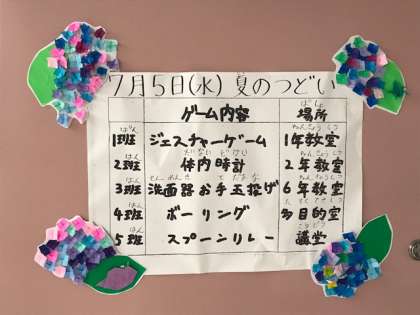 7月5日(水) 夏のつどい
ゲーム内容 場所
1班 ジェスチャーゲーム 1年教室
2班 体内時計 2年教室
3班 洗面器お手玉投げ 6年教室
4班 ボーリング 多目的室
5班 スプーンリレー 講堂